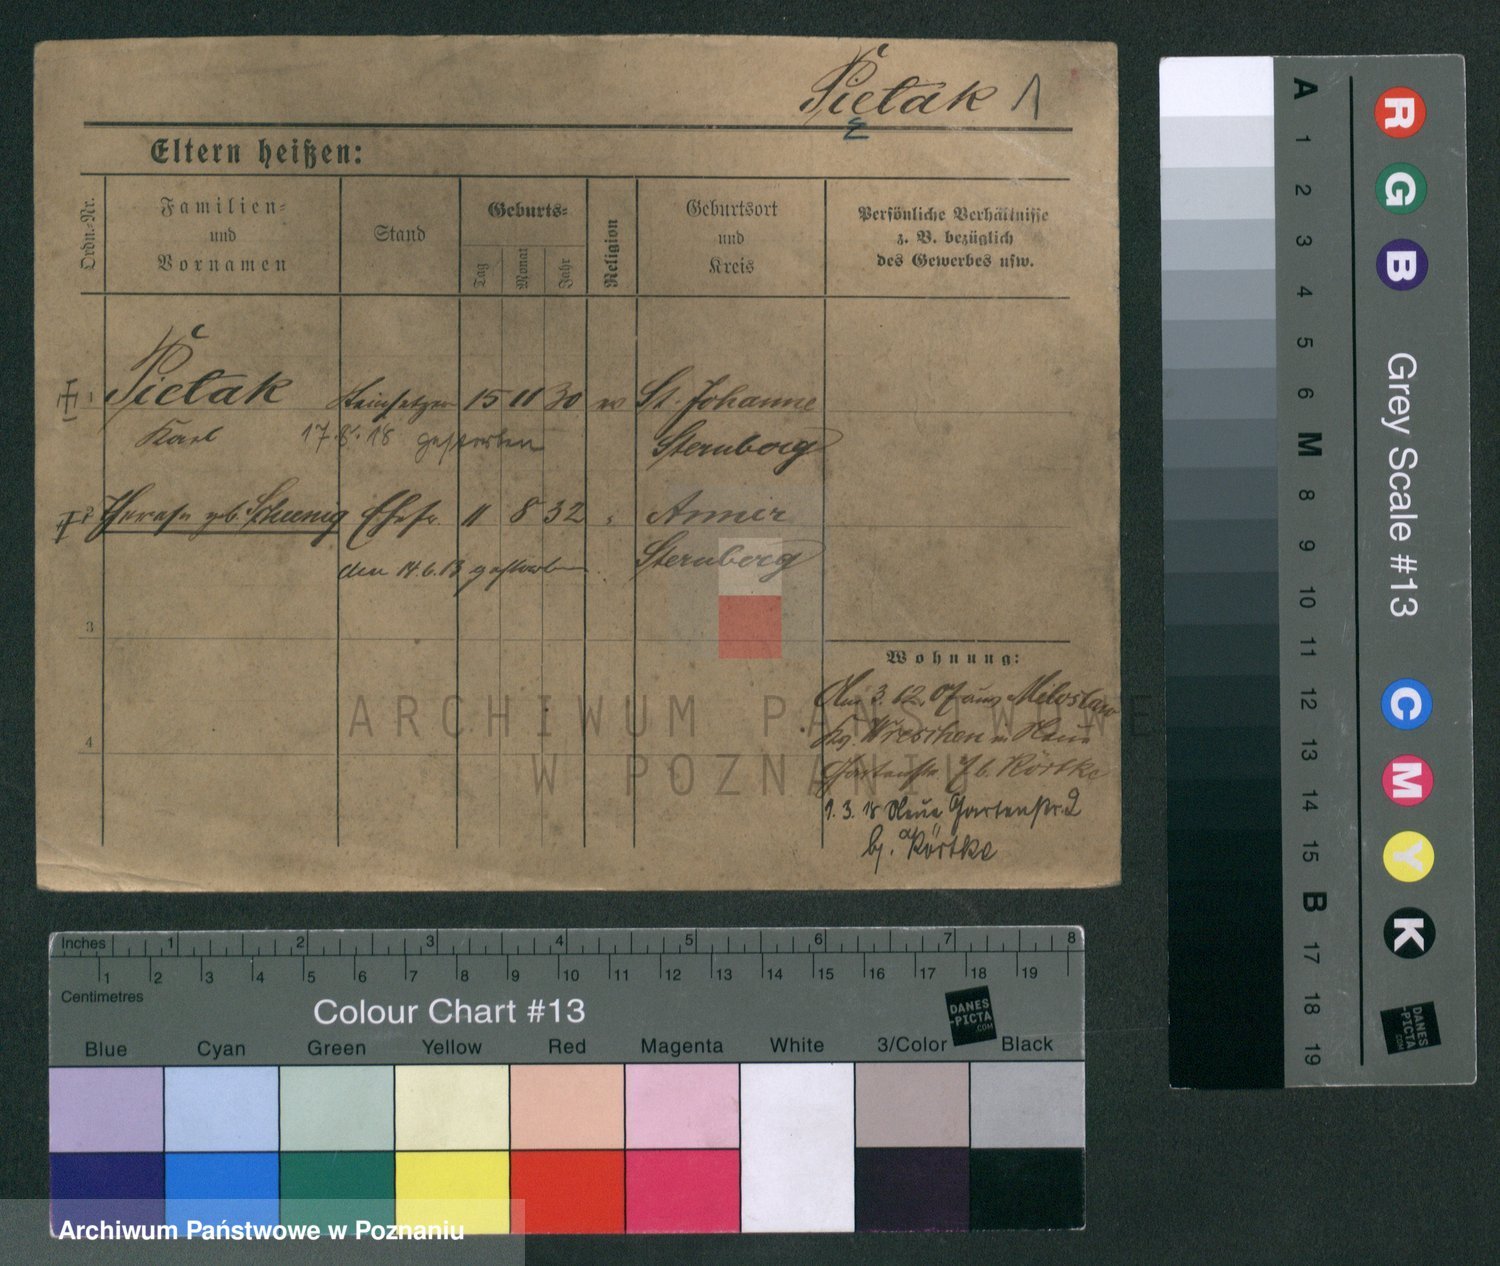 Pietak 1
Eltern heißen:
Ordn.-Nr.
Familien-
und
Vornamen
Stand
Geburts-
Tag
Monat
Jahr
Religion
Geburtsort
und
Kreis
Persönliche Verhältnisse
z. B. bezüglich
des Gewerbes usw.
1 Pietak Steinsetzer 15 11 30 ev St. Johanne
Karl 17.8.18 gestorben Sternberg
2 geb. Ehefr. 11 8 32 "
den 14.6.13 gestorben Sternberg
3
4
Wohnung:
3.12.07 aus Miloslaw
Wreschen
Gartenstr. 7 b. Körtke
1.3.18 Neue Gartenstr. 2
bj. Körtke
ARCHIWUM PAŃSTWOWE
W POZNANIU
Inches 1 2 3 4 5 6 7 8
1 2 3 4 5 6 7 8 9 10 11 12 13 14 15 16 17 18 19
Centimetres
Colour Chart #13
DANES
-PICTA
.COM
Blue Cyan Green Yellow Red Magenta White 3/Color Black
Archiwum Państwowe w Poznaniu
A 1 2 3 4 5 6 M 8 9 10 11 12 13 14 15 B 17 18 19
R G B
Grey Scale #13
C M Y K
DANES
-PICTA
.COM